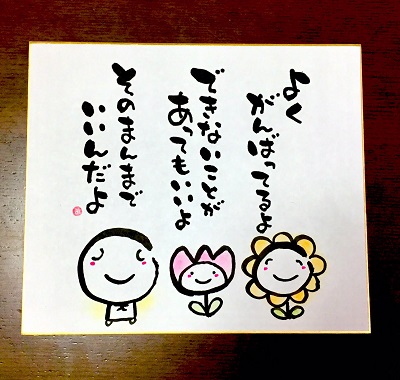 よく
がんばってるよ
できないことが
あってもいいよ
そのまんまで
いいんだよ